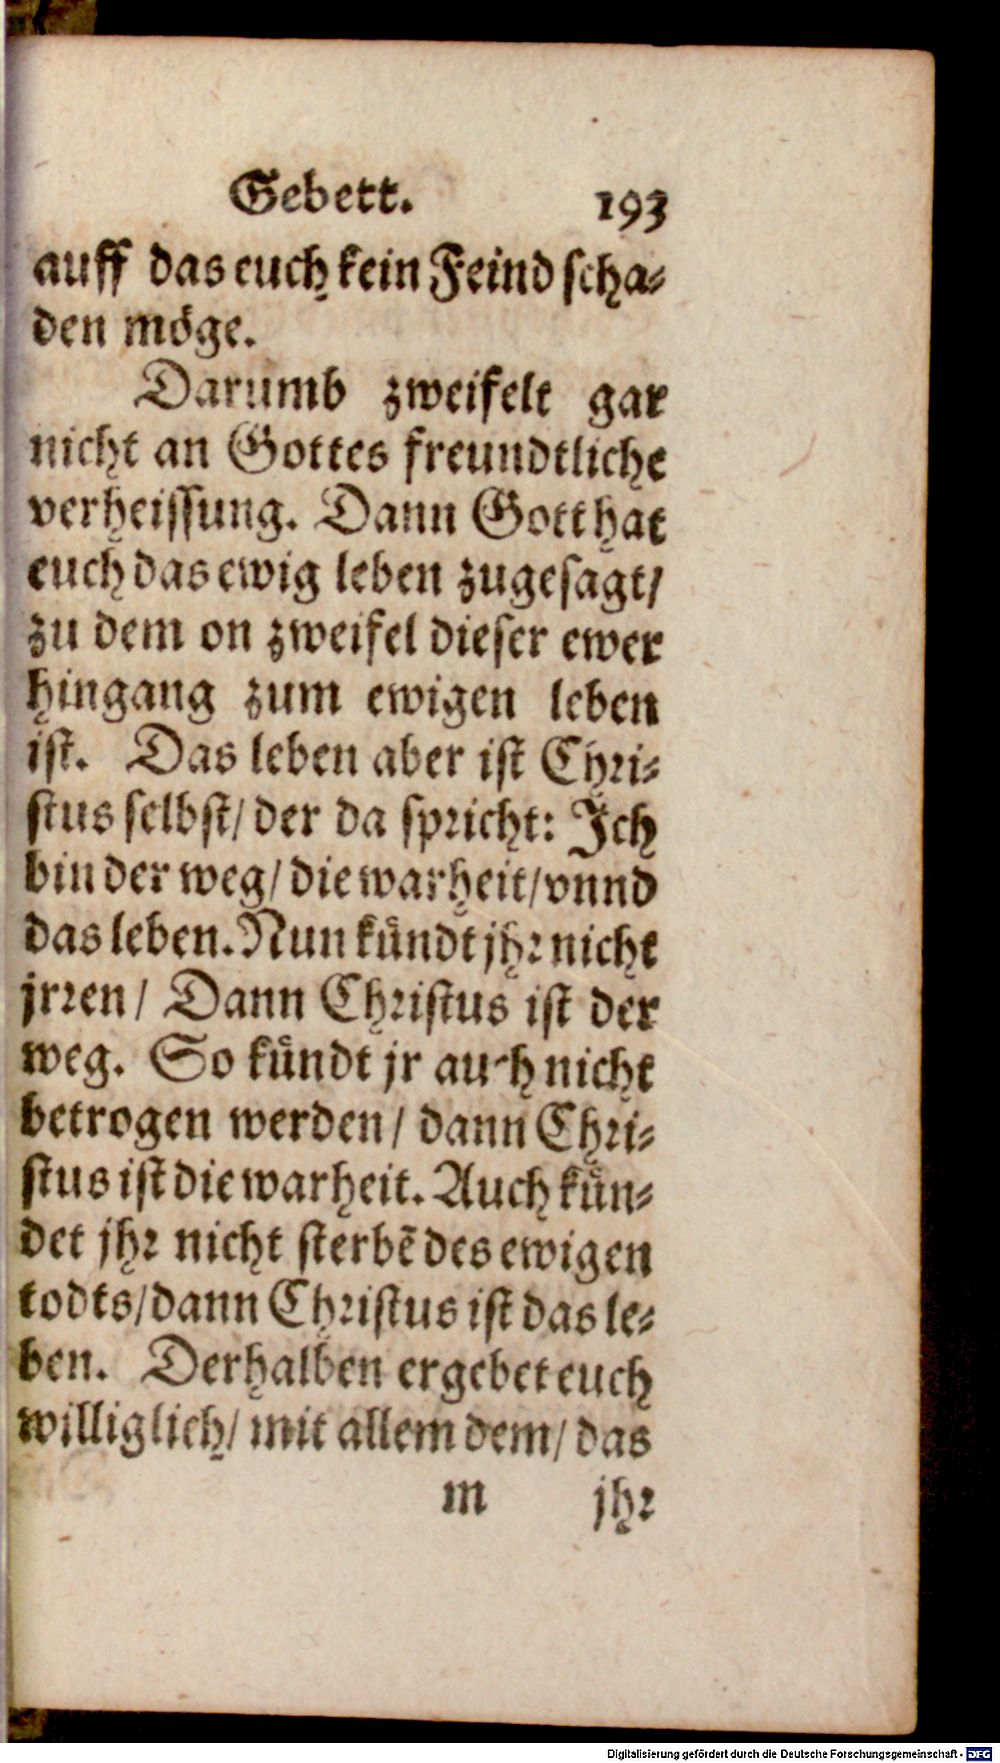 Gebett. 193
auff das euch kein Feind scha⸗
den möge.
Darumb zweifelt gar
nicht an Gottes freundtliche
verheissung. Dann Gott hat
euch das ewig leben zugesagt/
zu dem on zweifel dieser ewer
hingang zum ewigen leben
ist. Das leben aber ist Chri⸗
stus selbst/ der da spricht: Ich
bin der weg/ die warheit/ vnnd
das leben. Nun kündt jhr nicht
jrren/ Dann Christus ist der
weg. So kündt jr auch nicht
betrogen werden/ dann Chri⸗
stus ist die warheit. Auch kün⸗
det jhr nicht sterbē des ewigen
todts/ dann Christus ist das le⸗
ben. Derhalben ergebet euch
williglich/ mit allem dem/ das
m jhr
Digitalisierung gefördert durch die Deutsche Forschungsgemeinschaft - DFG